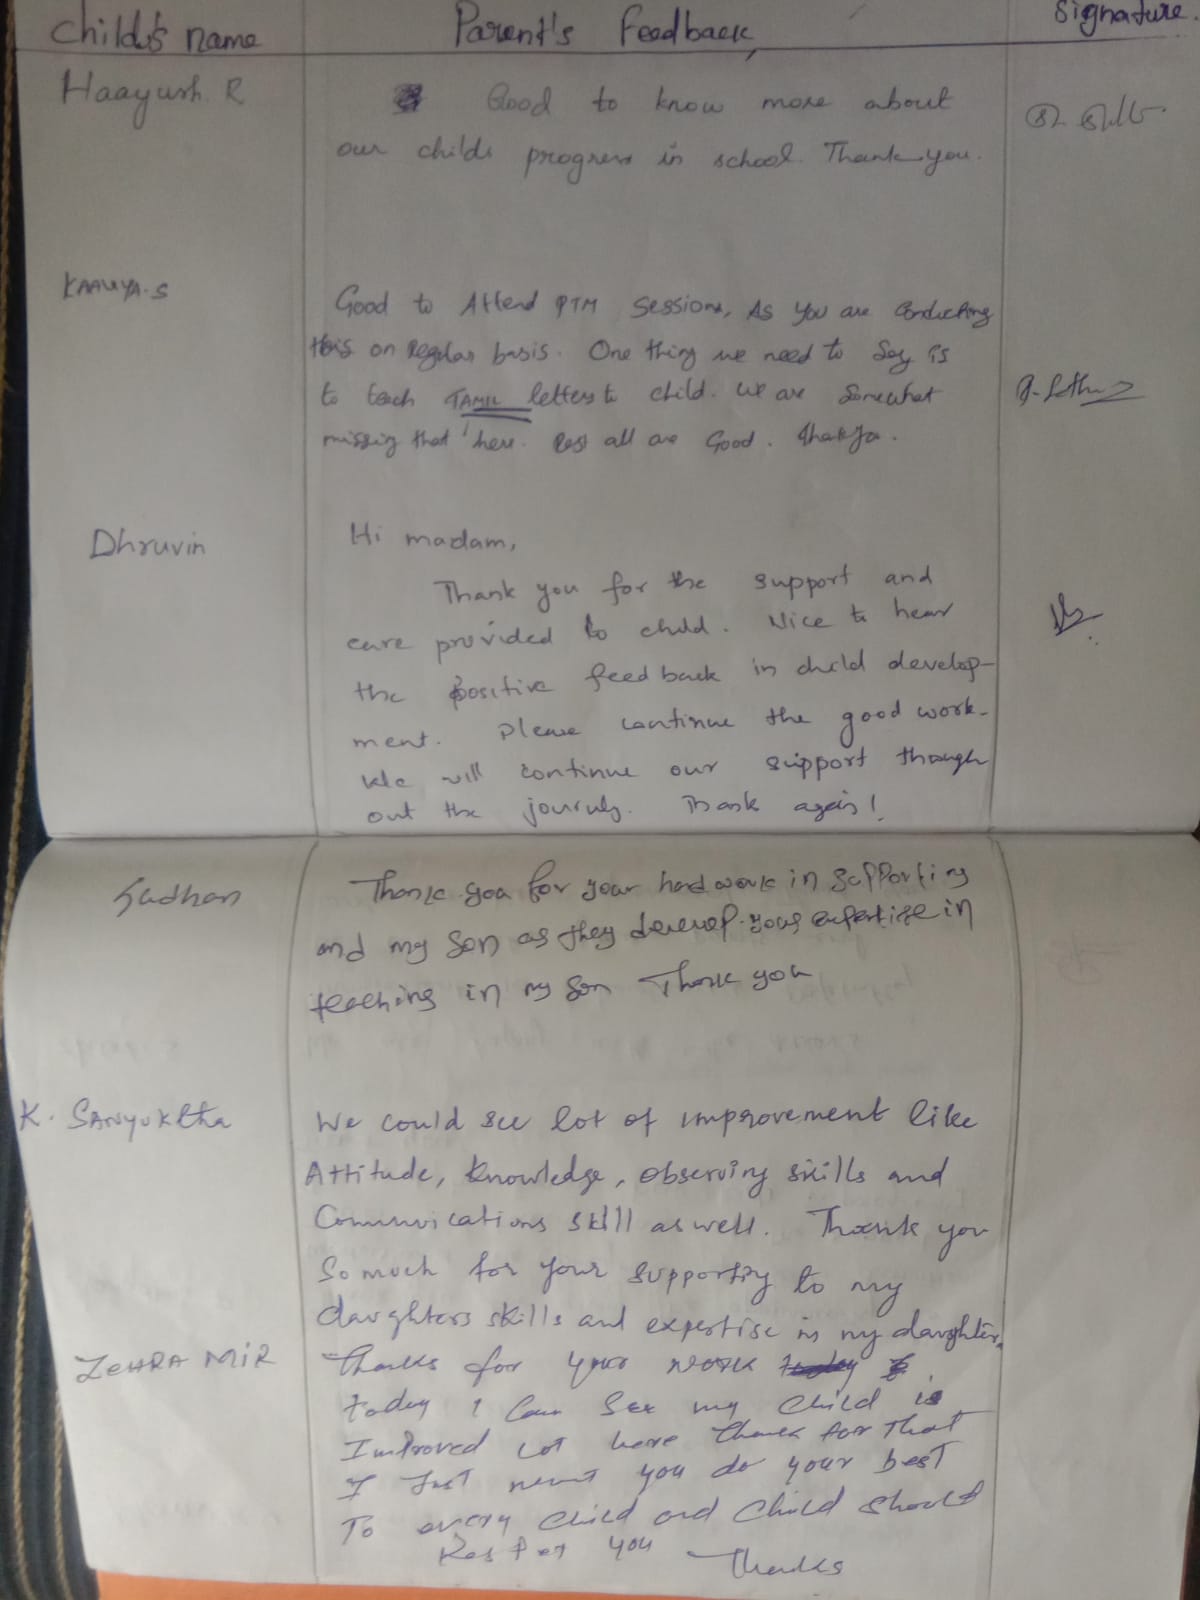 Child's name Parent's Feedback Signature.
Haayush. R Good to know more about
our childs progress in school. Thank you.
KAAVYA.S
Good to Attend PTM Sessions, As you are Conducting
this on Regular basis. One thing we need to Say is
to teach TAMIL letters to child. We are Somewhat
missing that here. Rest all are Good.
Dhruvin Hi madam,
Thank you for the support and
care provided to child. Nice to hear
the positive feedback in child develop-
ment. Please continue the good work.
We will continue our support though
out the journey. Thank again!
Sadhan Thank you for your hard work in supporting
and my son as they develop your expertise in
teaching in my son Thank you
K. SANYUKtha We could see lot of improvement like
Attitude, knowledge, observing skills and
Communications skill as well. Thank you
So much for your supporting to my
daughters skills and expertise in my daughter.
ZEHRA MIR Thanks for your work
today I Can See my child is
Improved Lot here thanks for That
I Just you do your best
To every child and child should
you
Thanks